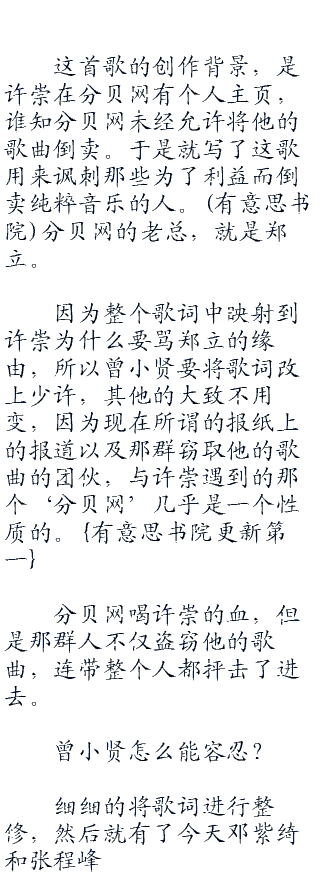 这首歌的创作背景，是
许崇在分贝网有个人主页，
谁知分贝网未经允许将他的
歌曲倒卖。于是就写了这歌
用来讽刺那些为了利益而倒
卖纯粹音乐的人。(有意思书
院)分贝网的老总，就是郑
立。
因为整个歌词中映射到
许崇为什么要骂郑立的缘
由，所以曾小贤要将歌词改
上少许，其他的大致不用
变，因为现在所谓的报纸上
的报道以及那群窃取他的歌
曲的团伙，与许崇遇到的那
个‘分贝网’几乎是一个性
质的。{有意思书院更新第
一}
分贝网喝许崇的血，但
是那群人不仅盗窃他的歌
曲，连带整个人都抨击了进
去。
曾小贤怎么能容忍？
细细的将歌词进行整
修，然后就有了今天邓紫绮
和张程峰